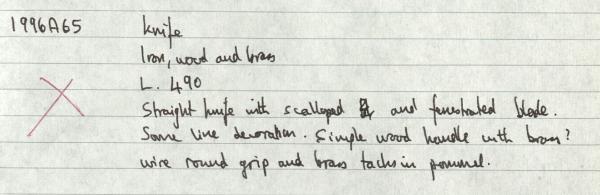 1996A65 Knife
Iron, wood and brass
L. 490
Straight knife with scalloped and fenestrated blade.
Some line decoration. Simple wood handle with brass?
wire round grip and brass tacks in pommel.